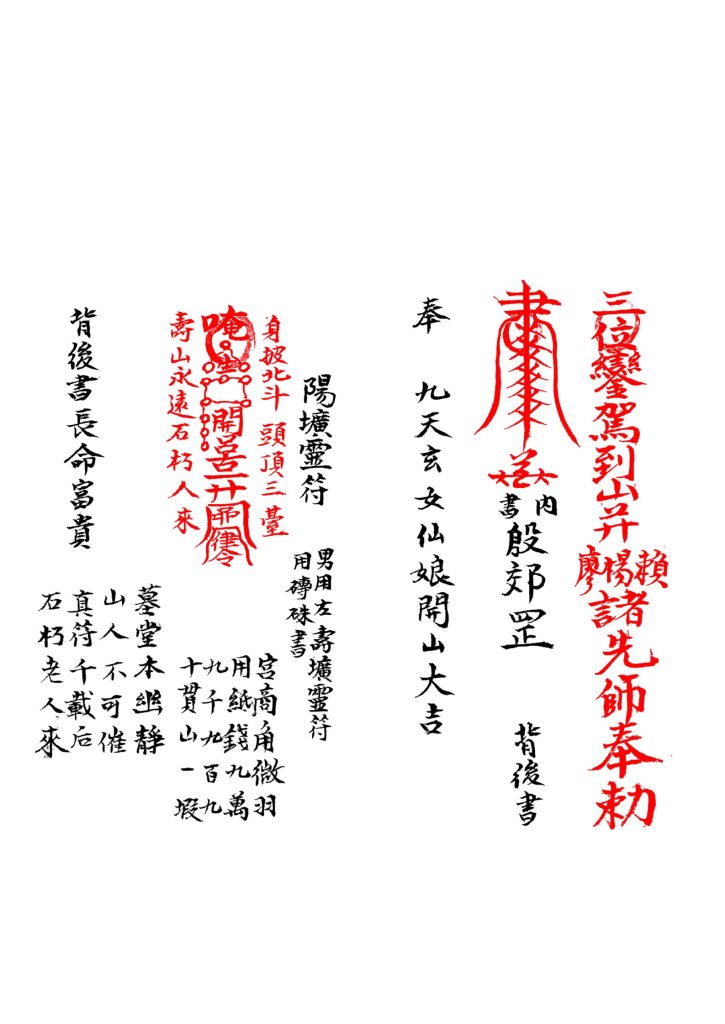 三位鑾駕到山并賴楊廖諸先師奉勅
內書殷郊罡
背後書
奉 九天玄女仙娘開山大吉
陽壙靈符
男用左壽壙靈符
用磚硃書
身披北斗 頭頂三臺
唵
開
壽山永遠石朽人來
宮商角微羽
用紙錢九萬
九千九百九
十貫山一塅
背後書長命富貴
墓堂本幽靜
山人不可催
真符千載后
石朽老人來